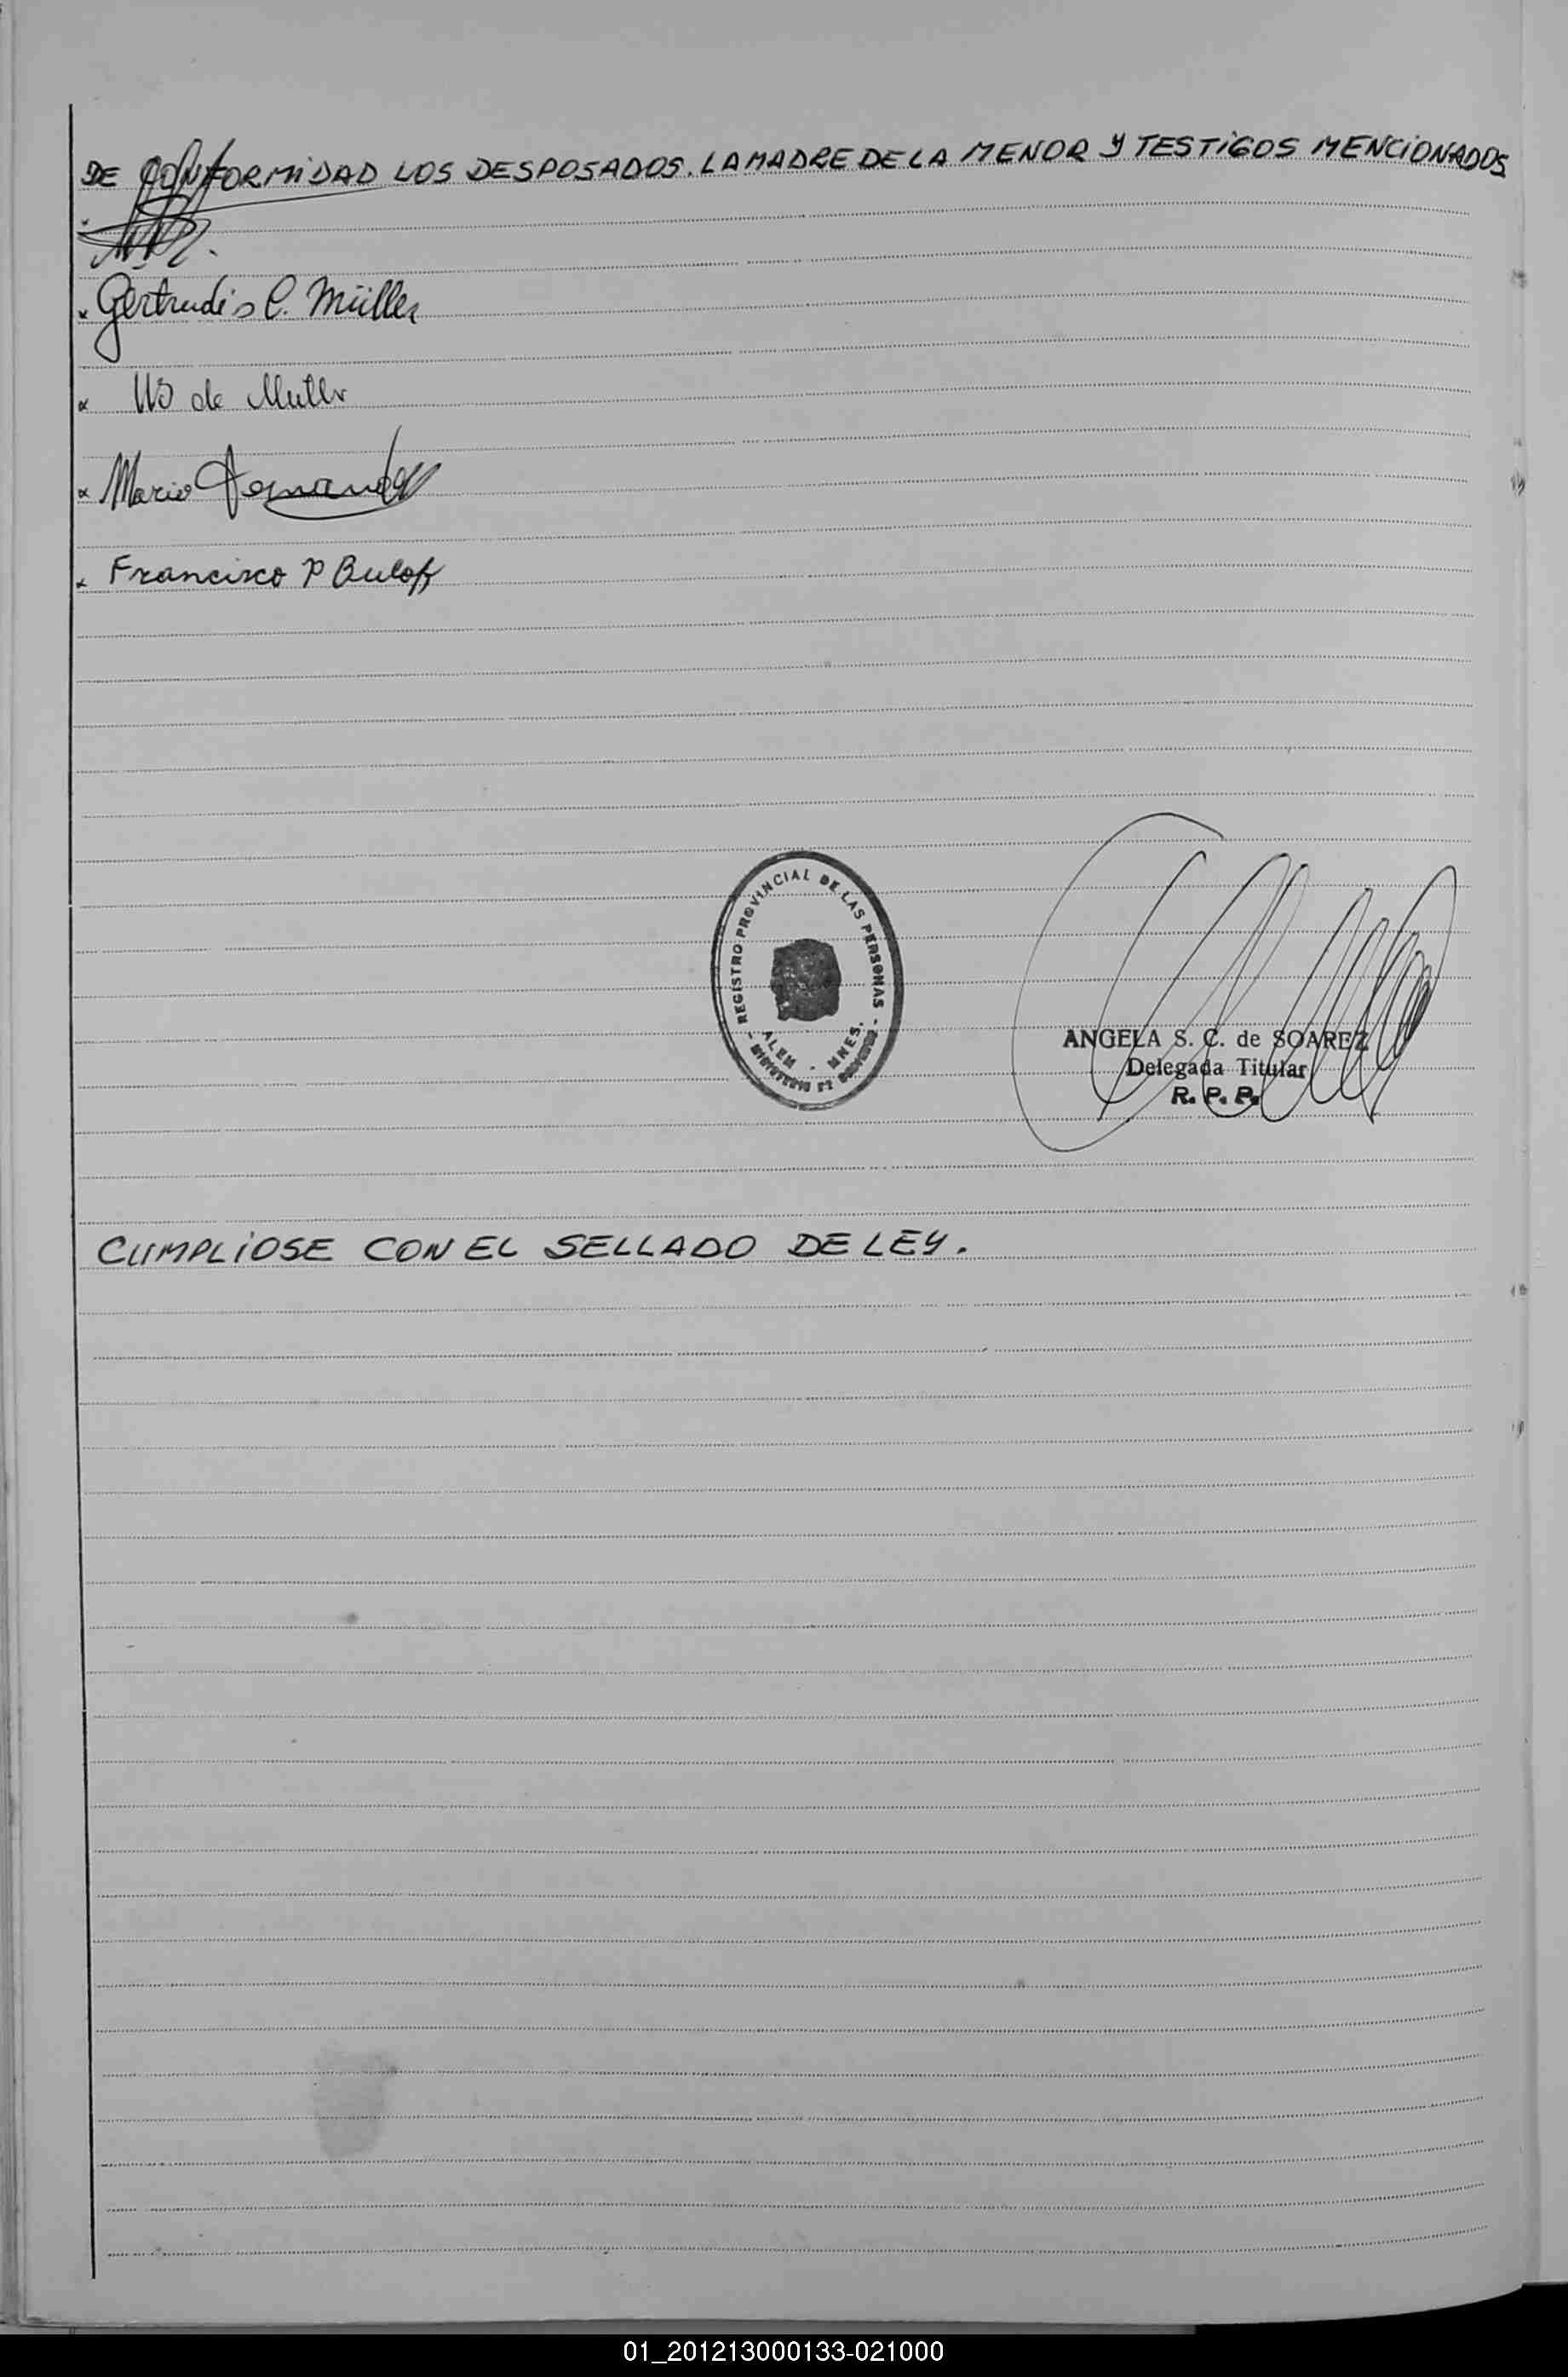 DE CONFORMIDAD LOS DESPOSADOS. LA MADRE DE LA MENOR Y TESTIGOS MENCIONADOS
x Gertrudis C. Müller
x de Muller
x Mario Fernandez
x Francisco P Buloff
REGISTRO PROVINCIAL DE LAS PERSONAS -
ALEM - MNES.
- MINISTERIO DE GOBIERNO -
ANGELA S. C. de SOAREZ
Delegada Titular
R. P. P.
CUMPLIOSE CON EL SELLADO DE LEY.
01_201213000133-021000